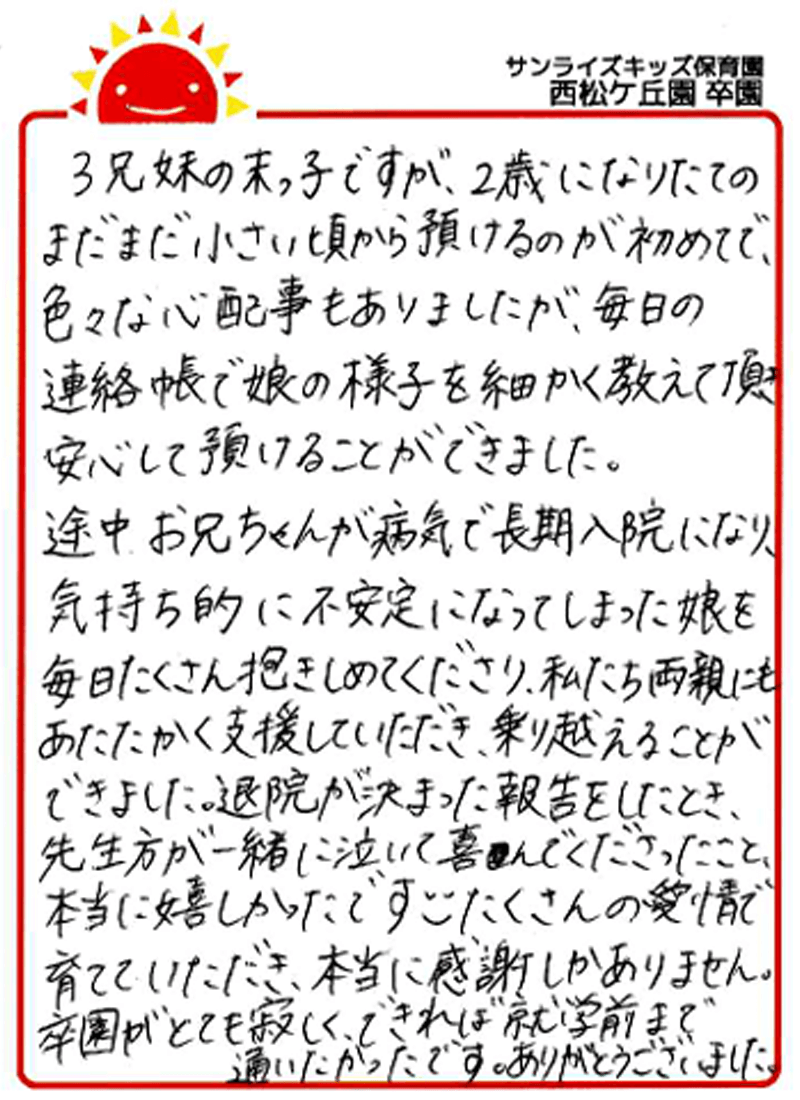 サンライズキッズ保育園
西松ケ丘園 卒園
3兄妹の末っ子ですが、2歳になりたての
まだまだ小さい頃から預けるのが初めてで、
色々な心配事もありましたが、毎日の
連絡帳で娘の様子を細かく教えて頂き
安心して預けることができました。
途中お兄ちゃんが病気で長期入院になり、
気持ち的に不安定になってしまった娘を
毎日たくさん抱きしめてくださり、私たち両親にも
あたたかく支援していただき、乗り越えることが
できました。退院が決まった報告をしたとき、
先生方が一緒に泣いて喜んでくださったこと、
本当に嬉しかったです。たくさんの愛情で
育てていただき、本当に感謝しかありません。
卒園がとても寂しく、できれば就学前まで
通いたかったです。ありがとうございました。